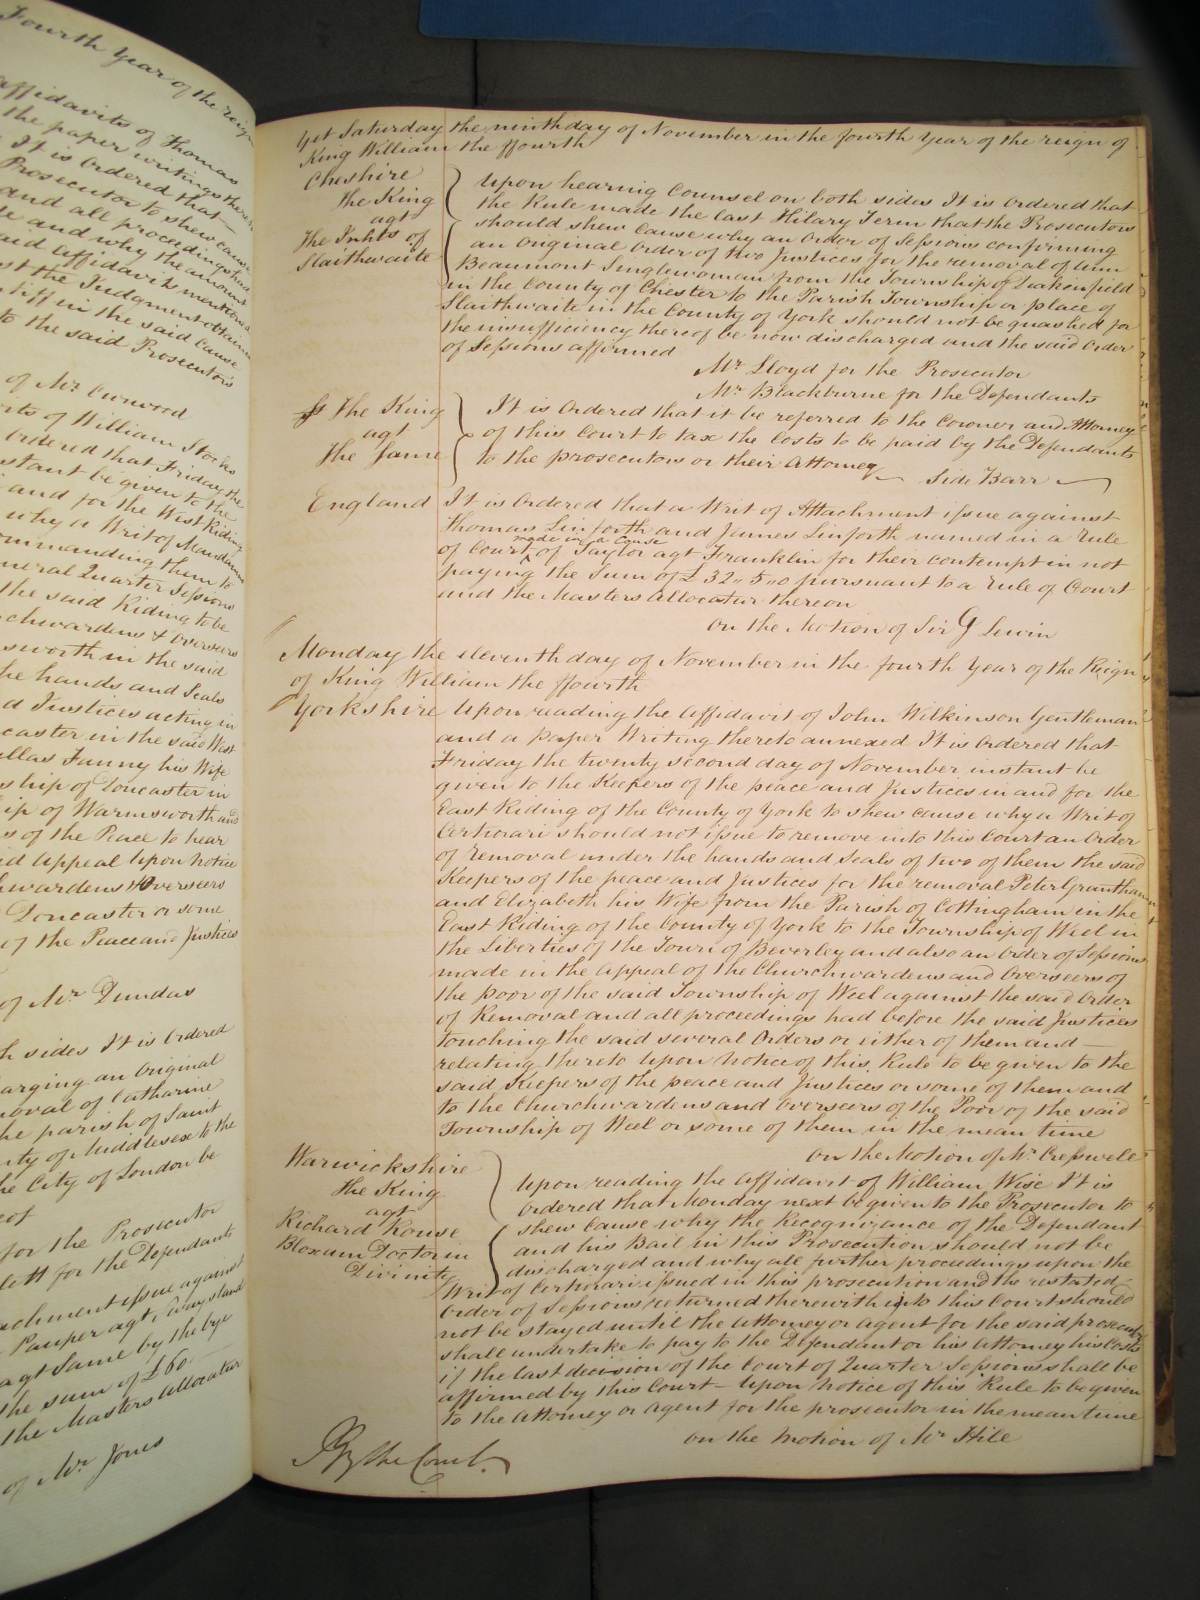 Fourth Year of the reign
affidavits of Thomas
the paper writings there
It is Ordered that
Prosecutor to shew cause
and all proceedings had
and why the amount
said affidavits mentioned
the Judgment obtained
in the said Cause
to the said Prosecutors
of Mr Curwood
William Stocks
ordered that Friday the
instant be given to the
and for the West Riding
why a Writ of Mandamus
commanding them to
General Quarter Sessions
the said Riding to be
Churchwardens & Overseers
in the said
the hands and Seals
Justices acting in
in the said West
Fanny his Wife
ship of Doncaster in
of Warmsworth and
of the Peace to hear
said Appeal Upon Notice
Overseers
Doncaster or some
of the Peace and Justices
of Mr Dundas
sides It is Ordered
an Original
removal of Catharine
the parish of Saint
County of Middlesex to the
the City of London be
for the Prosecutor
for the Defendants
attachment issue against
Pauper agt
agt Same by the bye
the sum of £60
the Masters Allocatur
of Mr Jones
Yet Saturday the ninth day of November in the fourth Year of the reign of
King William the ffourth
Cheshire
The King
agt
The Inhts of
Slaithwaite
Upon hearing Counsel on both sides It is Ordered that
the Rule made the last Hilary Term that the Prosecutors
should shew cause why an Order of Sessions confirming
an Original Order of two Justices for the removal of Ann
Beaumont Singlewoman from the Township of Duckinfield
in the County of Chester to the Parish Township or place of
Slaithwaite in the County of York should not be quashed for
the insufficiency thereof be now discharged and the said Order
of Sessions affirmed
Mr Lloyd for the Prosecutor
Mr Blackburne for the Defendants
The King
agt
The Same
It is Ordered that it be referred to the Coroner and Attorney
of this Court to tax the Costs to be paid by the Defendants
to the prosecutors or their Attorney
Side Barr
England It is Ordered that a Writ of Attachment issue against
Thomas Linforth and James Linforth named in a Rule
made in a Cause
of Court of Taylor agt Franklin for their contempt in not
paying the Sum of £32 " 5 " 0 pursuant to a Rule of Court
and the Masters Allocatur thereon
On the Motion of Sir G Lewin
Monday the eleventh day of November in the fourth Year of the Reign
of King William the ffourth
Yorkshire Upon reading the Affidavit of John Wilkinson Gentleman
and a paper Writing thereto annexed It is Ordered that
Friday the twenty second day of November instant be
given to the Keepers of the peace and Justices in and for the
East Riding of the County of York to shew cause why a Writ of
Certiorari should not issue to remove into this Court an Order
of Removal under the hands and Seals of two of them the said
Keepers of the peace and Justices for the removal Peter Grantham
and Elizabeth his Wife from the Parish of Cottingham in the
East Riding of the County of York to the Township of Weel in
the Liberties of the Town of Beverley and also an Order of Sessions
made in the Appeal of the Churchwardens and Overseers of
the poor of the said Township of Weel against the said Order
of Removal and all proceedings had before the said Justices
touching the said several Orders or either of them and —
relating thereto Upon Notice of this Rule to be given to the
said Keepers of the peace and Justices or some of them and
to the Churchwardens and Overseers of the Poor of the said
Township of Weel or some of them in the mean time
On the Motion of Mr Cresswell
Warwickshire
The King
agt
Richard Rouse
Bloxam Doctor in
Divinity
Upon reading the Affidavit of William Wise It is
Ordered that Monday next be given to the Prosecutor to
shew cause why the Recognizance of the Defendant
and his Bail in this Prosecution should not be
discharged and why all further proceedings upon the
Writ of Certiorari issued in this prosecution and the restated
Order of Sessions returned therewith into this Court should
not be stayed until the Attorney or Agent for the said prosecutor
shall undertake to pay to the Defendant or his Attorney his Costs
if the last decision of the Court of Quarter Sessions shall be
affirmed by this Court — Upon Notice of this Rule to be given
to the Attorney or Agent for the prosecutor in the mean time
On the Motion of Mr Hill
By the Court